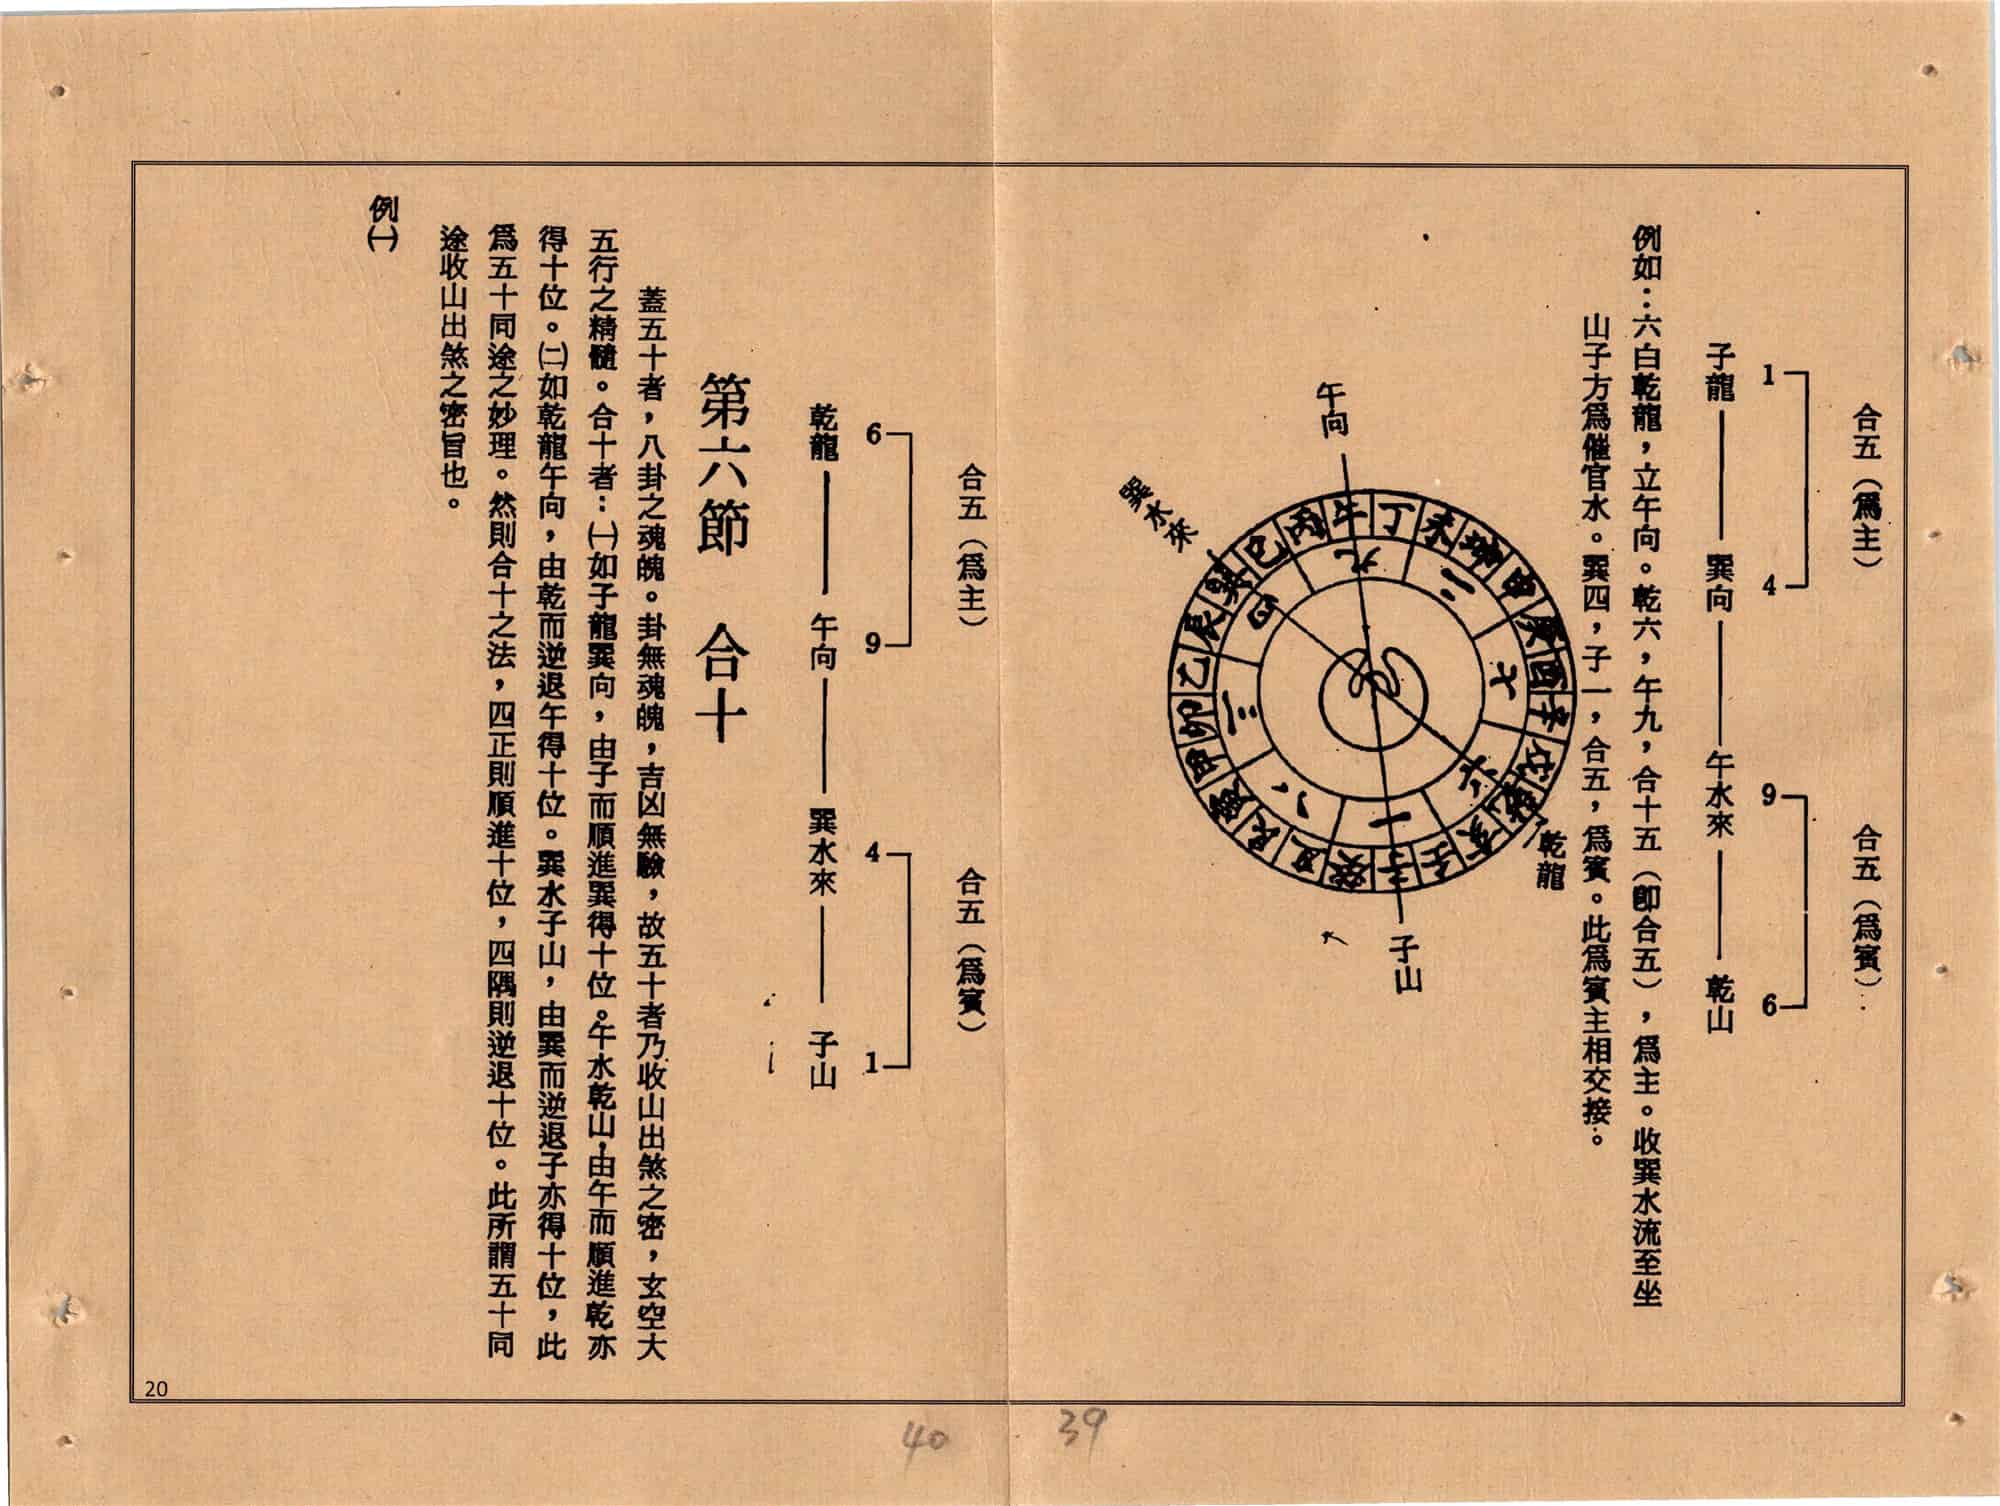 合五（爲主）　合五（爲賓）
1　4　9　6
子龍──巽向──午水來──乾山
例如：六白乾龍，立午向。乾六，午九，合十五（卽合五），爲主。收巽水流至坐
山子方爲催官水。巽四，子一，合五，爲賓。此爲賓主相交接。
午向
巽水來
乾龍
子山
午丁未坤申庚酉辛戌乾亥壬子癸丑艮寅甲卯乙辰巽巳丙
九二七六一八三四
合五（爲主）　合五（爲賓）
6　9　4　1
乾龍──午向──巽水來──子山
第六節　合十
蓋五十者，八卦之魂魄。卦無魂魄，吉凶無驗，故五十者乃收山出煞之密，玄空大
五行之精髓。合十者：㈠如子龍巽向，由子而順進巽得十位。午水乾山，由午而順進乾亦
得十位。㈡如乾龍午向，由乾而逆退午得十位。巽水子山，由巽而逆退子亦得十位，此
爲五十同途之妙理。然則合十之法，四正則順進十位，四隅則逆退十位。此所謂五十同
途收山出煞之密旨也。
例㈠
20
40
39